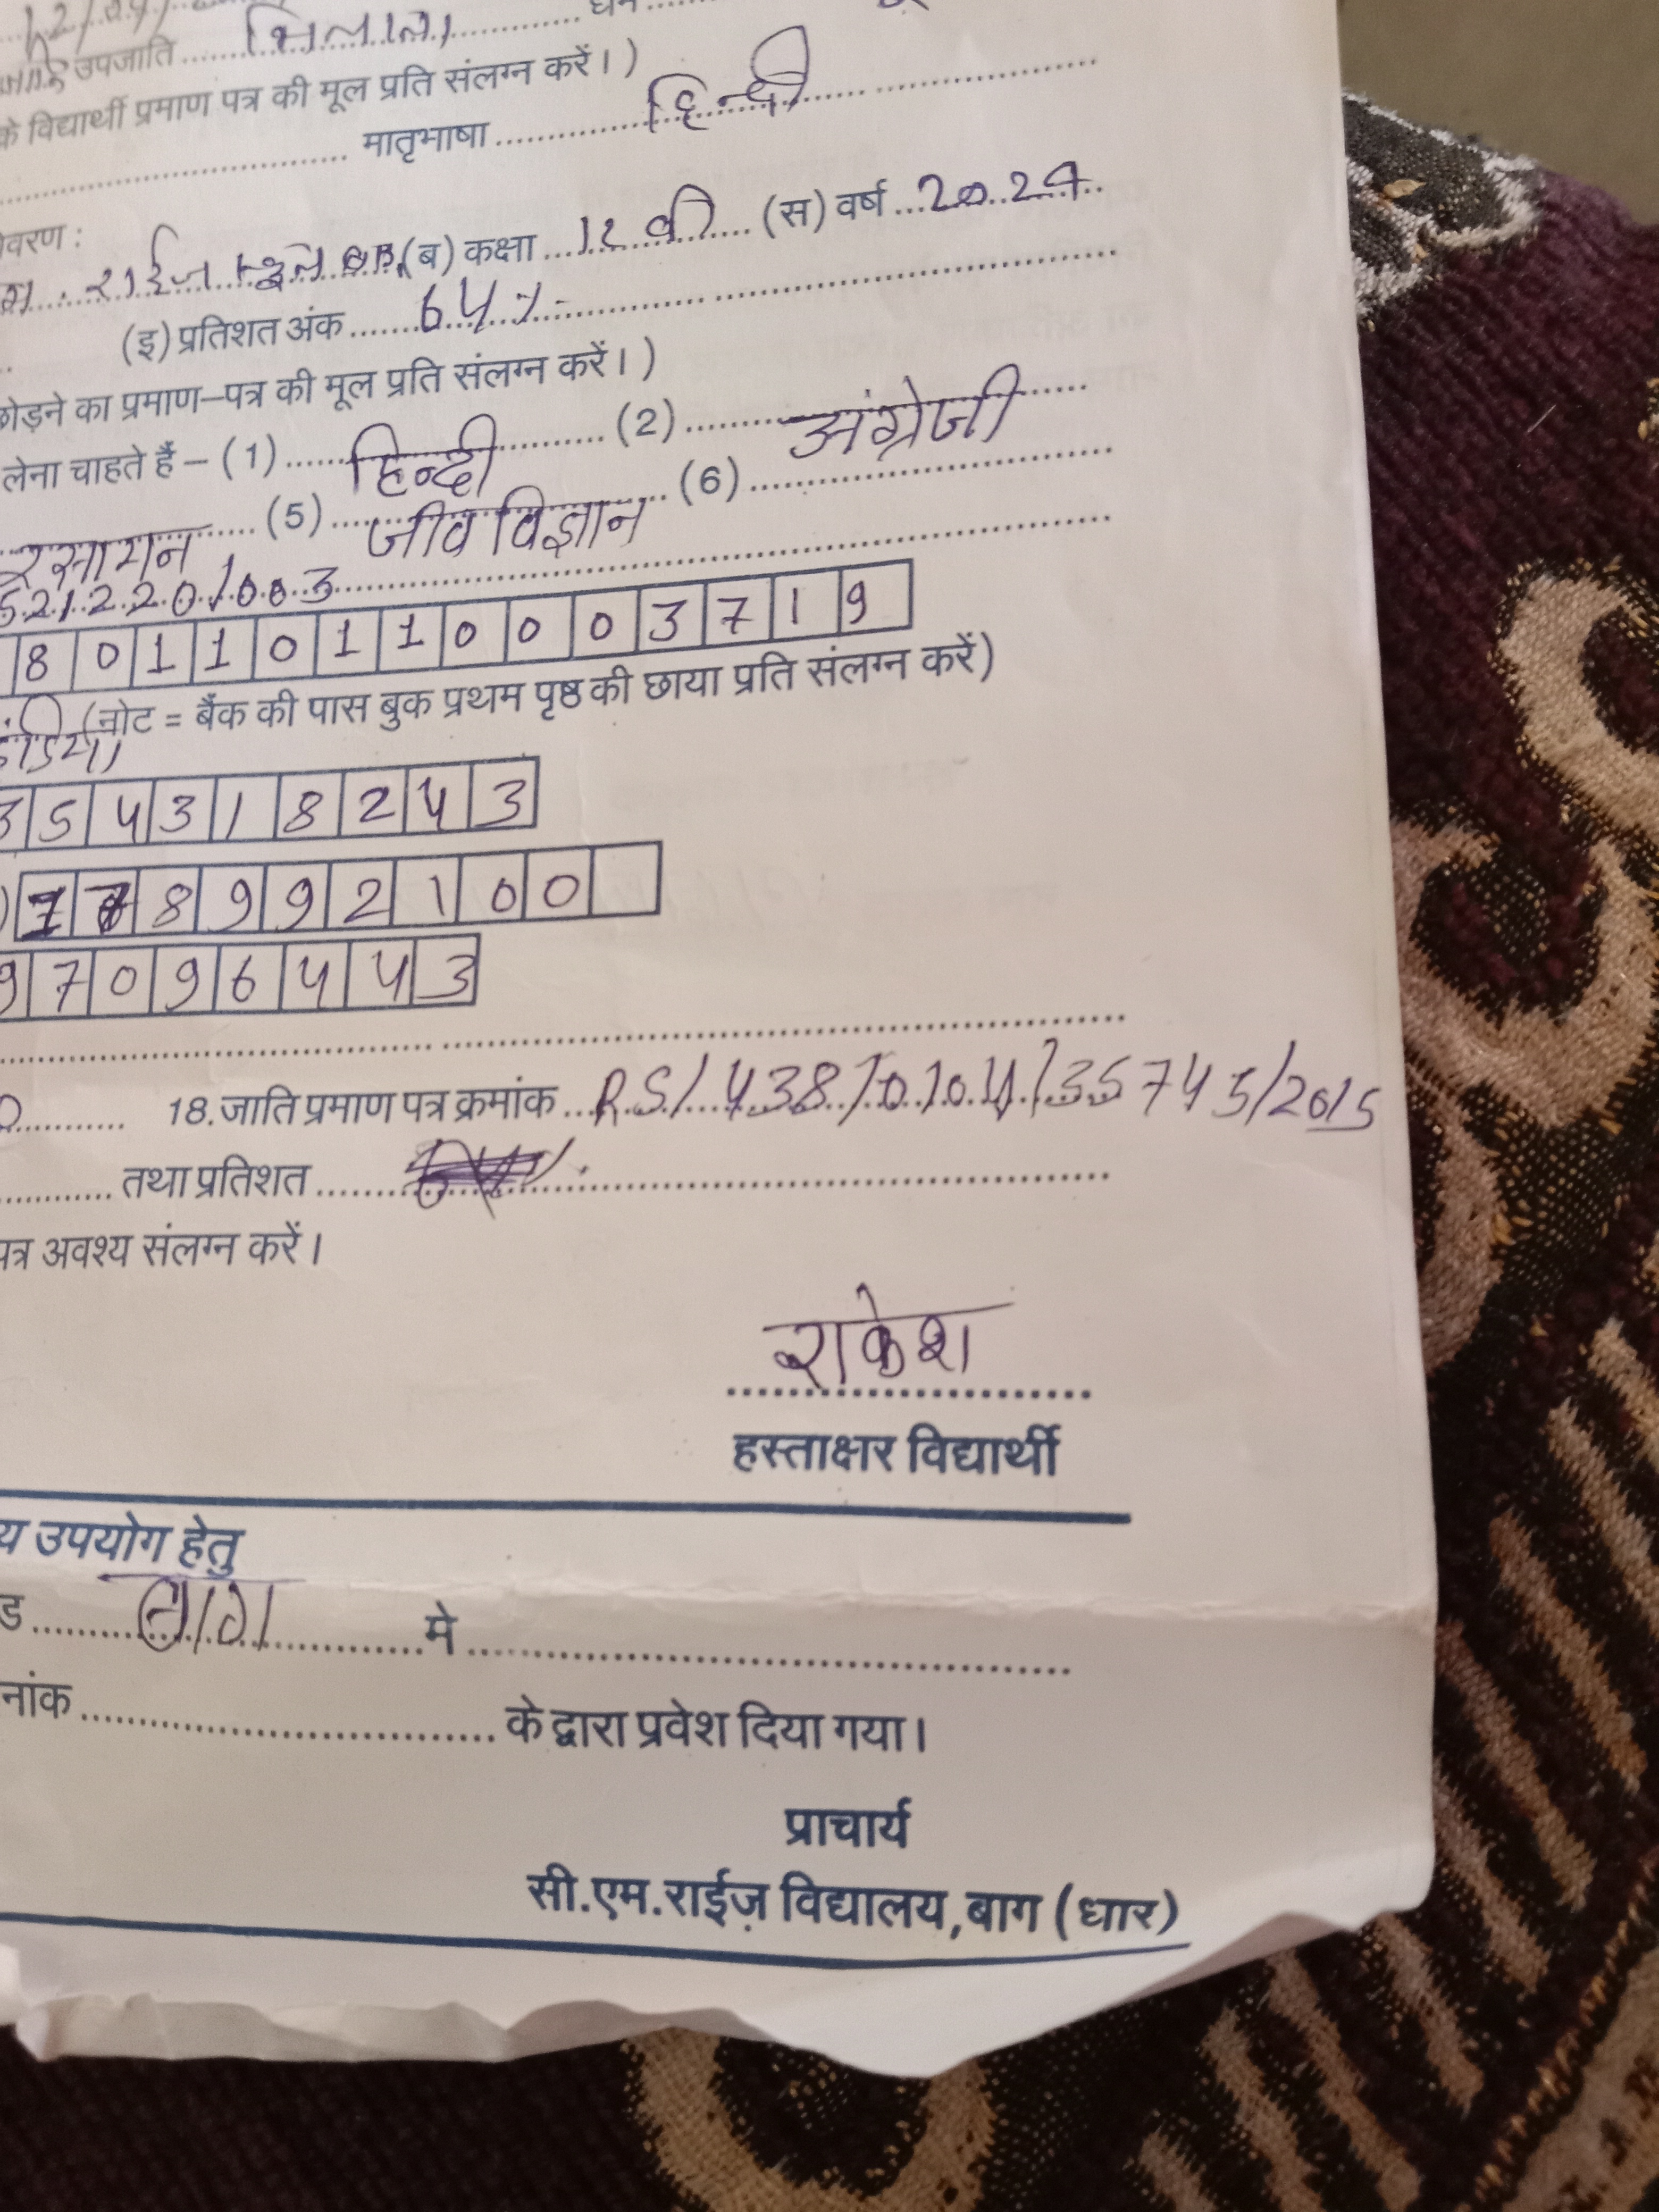 उपजाति भिलाला
के विद्यार्थी प्रमाण पत्र की मूल प्रति संलग्न करें। )
मातृभाषा हिन्दी
(ब) कक्षा 12 वी (स) वर्ष 2024
(इ) प्रतिशत अंक 64%
छोड़ने का प्रमाण–पत्र की मूल प्रति संलग्न करें। )
लेना चाहते हैं – (1) हिन्दी (2) अंग्रेजी
रसायन (5) जीव विज्ञान (6)
8 0 1 1 0 1 1 0 0 0 3 7 1 9
(नोट = बैंक की पास बुक प्रथम पृष्ठ की छाया प्रति संलग्न करें)
3 5 4 3 1 8 2 4 3
8 9 9 2 1 0 0
9 7 0 9 6 4 4 3
18.जाति प्रमाण पत्र क्रमांक RS/438/0104/35745/2015
तथा प्रतिशत
पत्र अवश्य संलग्न करें।
राकेश
हस्ताक्षर विद्यार्थी
उपयोग हेतु
बाग मे
के द्वारा प्रवेश दिया गया।
प्राचार्य
सी.एम.राईज़ विद्यालय,बाग (धार)